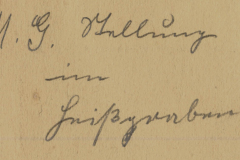 M. G. Stellung
im
Heißgraben